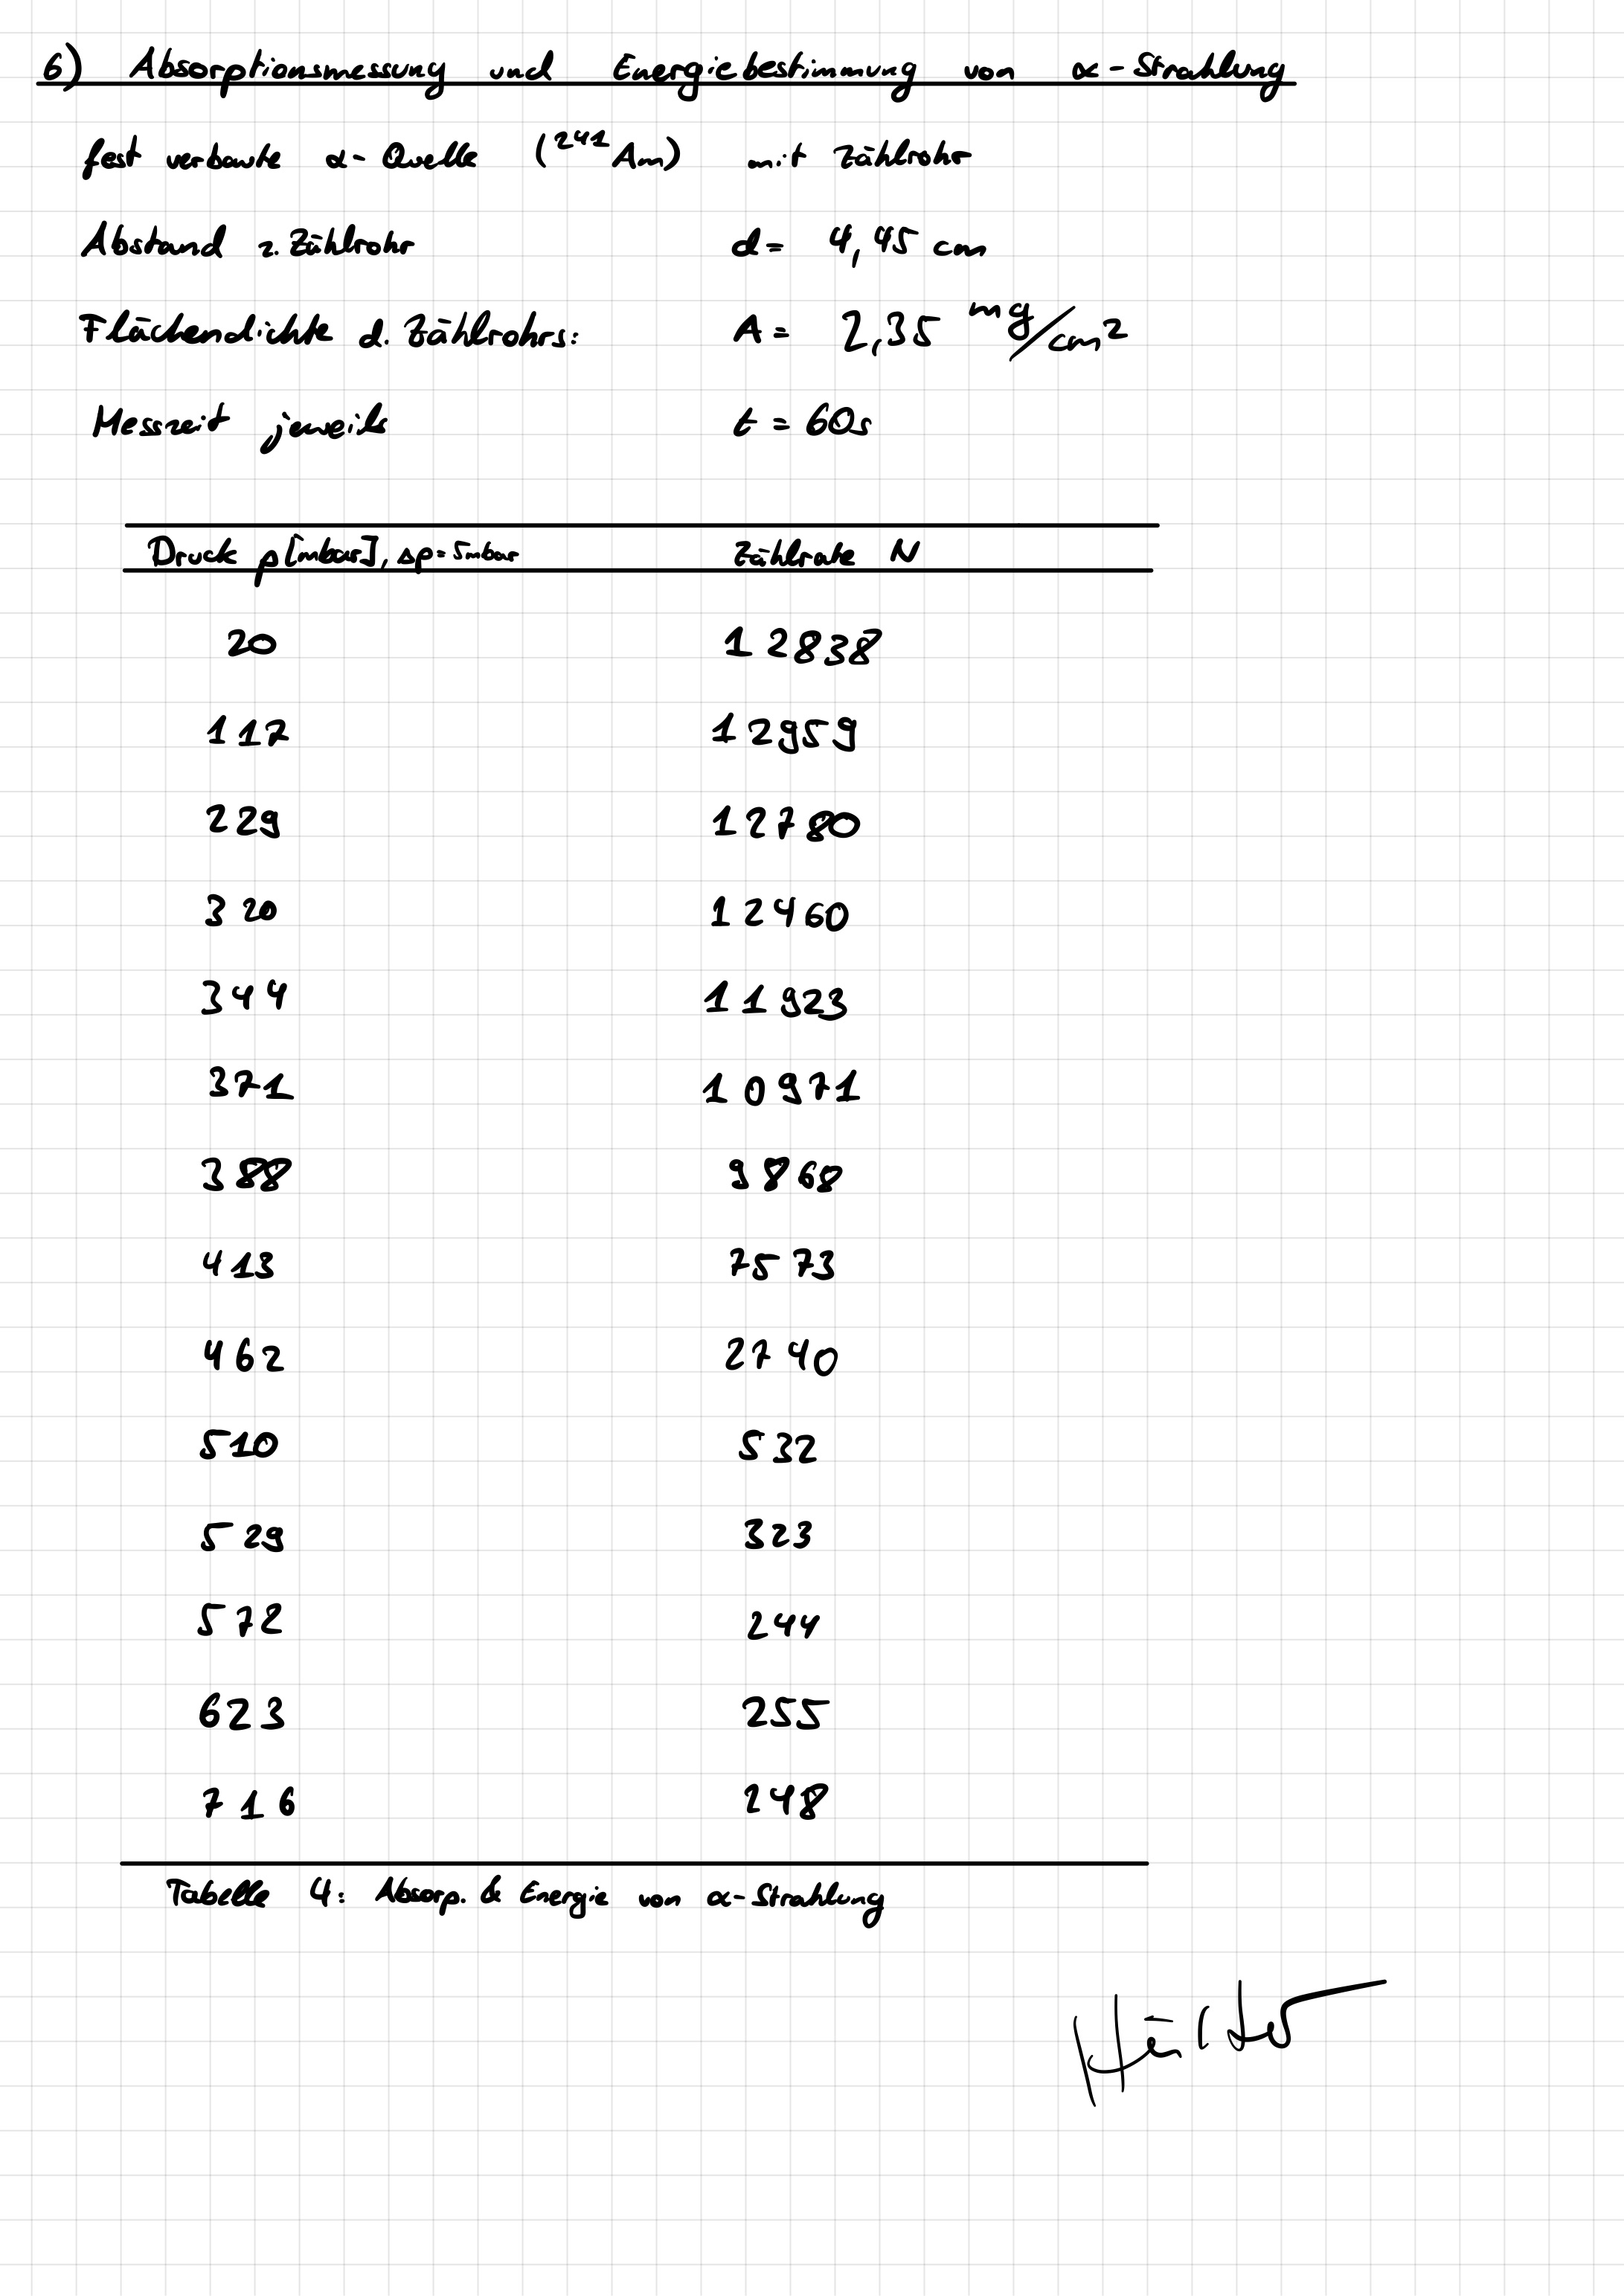 6) Absorptionsmessung und Energiebestimmung von α-Strahlung
fest verbaute α-Quelle (²⁴¹Am) mit Zählrohr
Abstand z. Zählrohr d= 4,45 cm
Flächendichte d. Zählrohrs: A= 2,35 mg/cm²
Messzeit jeweils t = 60s
Druck p[mbar], Δp=5mbar Zählrate N
20 12838
117 12959
229 12780
320 12460
344 11923
371 10971
388 9868
413 7573
462 2740
510 532
529 323
572 244
623 255
716 248
Tabelle 4: Absorp. & Energie von α-Strahlung